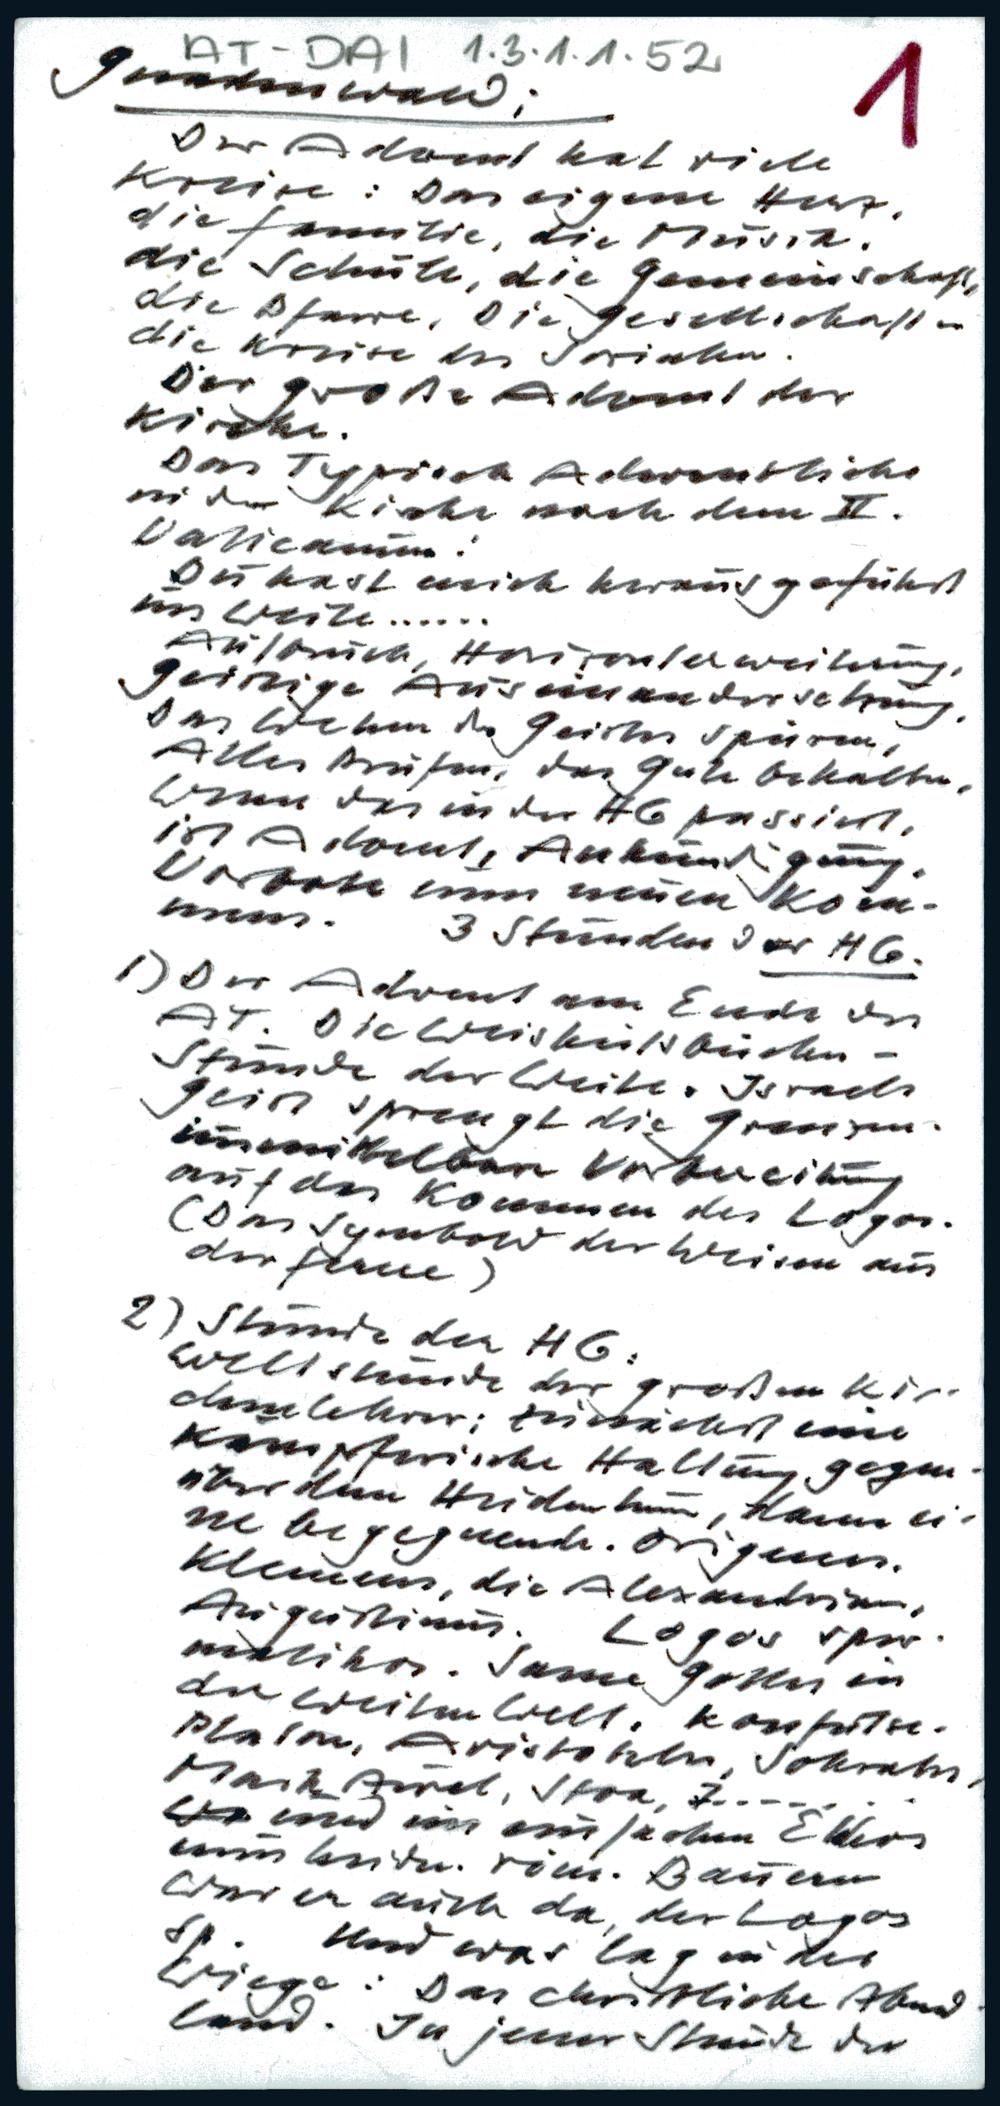 AT-DAI 1.3.1.1.52
1
Gnadenwald:
Der Advent hat viele
Kreise: Das eigene Herz,
die Familie, die Musik,
die Schule, die Gemeinschaft,
die Pfarre, Die Gesellschaft u
die Kreise des Sozialen.
Der große Advent der
Kirche.
Das Typisch Adventliche
in der Kirche nach dem II.
Vaticanum:
Du hast mich herausgeführt
ins Weite......
Aufbruch, Horizonterweiterung,
Geistige Auseinandersetzung,
Das Wehen des Geistes spüren,
Alles Prüfen, das Gute behalten,
Wenn das in der HG passiert,
ist Advent, Ankündigung,
Vorbote eines neuen Kom-
mens. 3 Stunden der HG.
1) Der Advent am Ende des
AT. Die Weisheitsbücher -
Stunde der Weite. Israels
Geist sprengt die Grenzen.
unmittelbare Vorbereitung
auf das Kommen des Logos.
(Das Symbol der Weisen aus
der Ferne)
2) Stunde der HG:
Weltstunde der großen Kir-
chenlehrer: zunächst eine
Kämpferische Haltung gegen-
über dem Heidentum, dann ei-
ne begegnende. Origenes.
Klemens, die Alexandriner,
Augustinus. Logos sper-
matikos. Same Gottes in
der weiten Welt. Konfutse.
Platon, Aristoteles, Sokrates,
Mark Aurel, Stoa, .......
und im einfachen Ethos
eines heidn. röm. Bauern
war er auch da, der Logos
sp. Und was lag in der
Wiege: Das christliche Abend-
land. In jener Stunde der